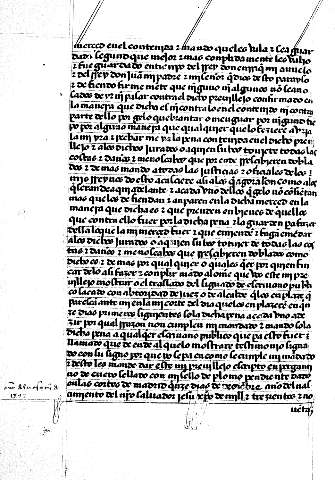 merced en el contenida z mando que les vala z sea guar
dada segund que mejor z mas conplidamente les valio
z fue guardada en tienpo del rrey don enrriq mi auuelo
z del rrey don Juan mi padre z mi señor q dios de sto parayso
z defiendo firme mēte que ninguno nj algunos no sean o
sados de yr nj pasar contra el dicho preuillejo confirmado en
la manera que dicha es nj contra lo en el contenido nj contra
parte dello por gelo quebrantar o menguar por njngund tiē
po por alguna manera que qual quier que lo feziese aurya
la mi yra z pechar me ya la pena contenida en el dicho pre
uillejo z alos dichos Jurados o aquien su boz touiese todas las
costas z daños z menoscabos que por ende rresçibieren dobla
dos z de mas mando atodas las justiçias z ofiçiales delos
mis rreynos do esto acaesciere asi alos q agora son como alos
q seran de aqui adelante z acada vno dellos q gelo no cōsiētan
mas que los defiendan z anparen en la dicha merced en la
manera que dicha es z que prenden en bienes de aquellos
que contra ello fueren por la dicha pena z la guarden pa fazer
della lo que la mi merced fuere z que emiende z faga emēdar
alos dichos Jurados o aquien su boz touiere de todas las cos
tas z daños z menoscabos que rresçibieren doblados como
dicho es z de mas por qual quier o quales qer por quien fin
car delo asi fazer z conplir mādo al ome que vos este mi pre
uillejo mostrare o el treslado del signado de escriuano publi
co sacado con abtoridad de juez o de alcalde q los enplaze q
parescā ante mi en la mi corte del dia que los enplazare en qn
ze dias primeros siguientes so la dicha pena acada vno a de
zir por qual rrazon non cunplen mi mandado z mando so la
dicha pena a qualqer escriuano publico que pa esto fuere
llamado que de ende al que lo mostrare testimonio signa
do con su signo por que yo sepa en como se cunple mi mādado
z desto les mande dar este mi preuillejo escripto en pergami
no de cuero sellado con mi sello de plomo pendiente dado
en las cortes de madrid qinze dias de dezienbre año del nas
cimiento del nro saluador jesu xpo de mill z trezientos z no
uenta